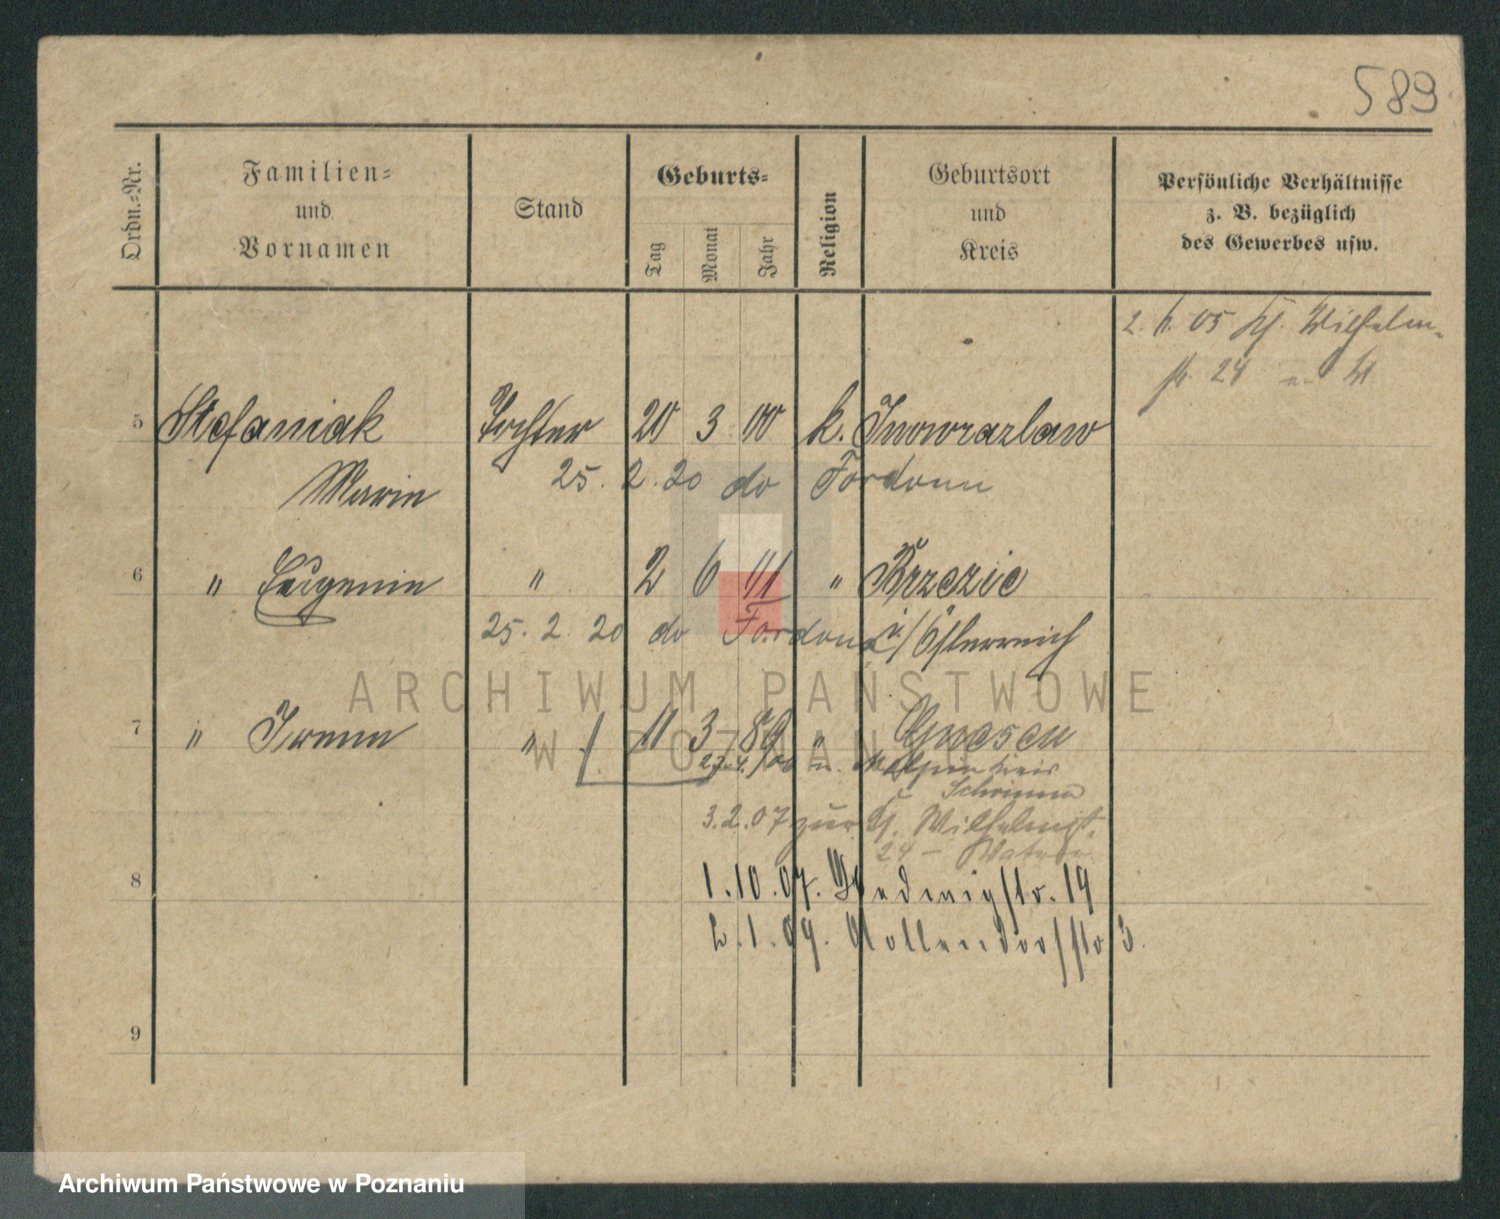 589
Ordn.-Nr.
Familien-
und
Vornamen
Stand
Geburts-
Tag
Monat
Jahr
Religion
Geburtsort
und
Kreis
Persönliche Verhältnisse
z. B. bezüglich
des Gewerbes usw.
05 Wilhelm-
str 24
5 Stefaniak Tochter 20 3 00 k. Inowrazlaw
Marie
25. 2. 20 do Fordonn
6 " Eugenie " 2 6 01 " Brzezie
25. 2. 20 do Fordonn i/Österreich
7 " Irene " 11 3 89 " Gnesen
Kreis
Schrimm
3.2.07 zur Wilhelmst.
24 -
8 1.10.07. Hedwigstr. 19
2.1.09. Nollendorfstr 3.
9
ARCHIWUM PAŃSTWOWE
W POZNANIU
Archiwum Państwowe w Poznaniu